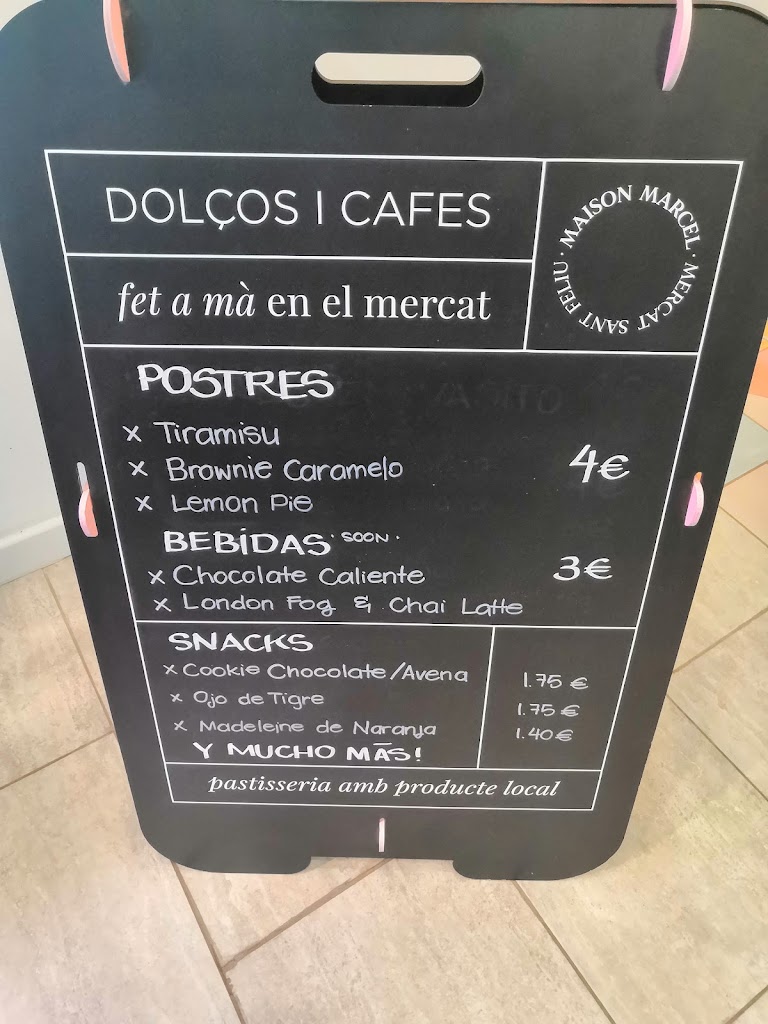 DOLÇOS I CAFES
MAISON MARCEL · MERCAT SANT FELIU ·
fet a mà en el mercat
POSTRES
x Tiramisu
x Brownie Caramelo 4€
x Lemon Pie
BEBÍDAS · SOON ·
x Chocolate Caliente 3€
x London Fog & Chai Latte
SNACKS
x Cookie Chocolate/Avena 1.75 €
x Ojo de Tigre 1.75 €
x Madeleine de Naranja 1.40€
Y MUCHO MÁS!
pastisseria amb producte local